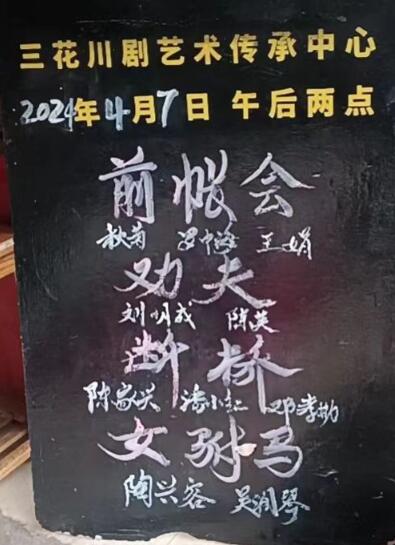 三花川剧艺术传承中心
2024年4月7日 午后两点
前帐会
秋菊 吕中海 王娟
劝夫
刘明成 陈英
断桥
陈家兴 潘小红 邓孝勤
女驸马
陶兴容 吴润琴